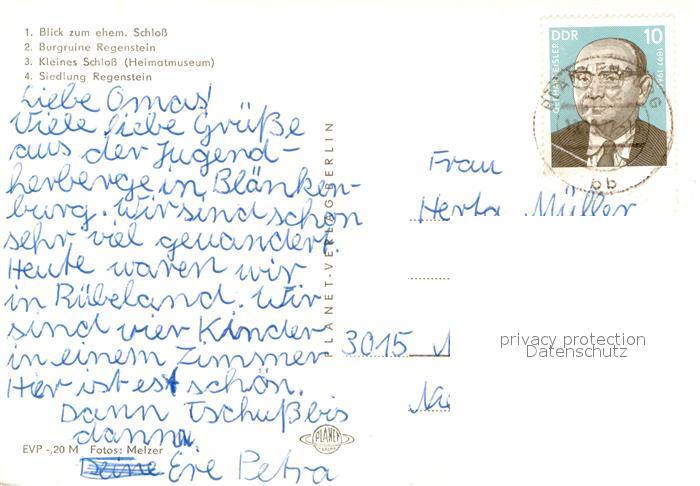 1. Blick zum ehem. Schloß
2. Burgruine Regenstein
3. Kleines Schloß (Heimatmuseum)
4. Siedlung Regenstein
Liebe Omas!
Viele liebe Grüße
aus der Jugend-
herberge in Blanken-
burg. Wir sind schon
sehr viel gewandert.
Heute waren wir
in Rübeland. Wir
sind vier Kinder
in einem Zimmer
Hier ist es schön.
Dann Tschußbis
dann.
Eve Petra
EVP -,20 M Fotos: Melzer
PLANET-VERLAG BERLIN
PLANET
DDR 10
GERHART EISLER
1897-196
bb
Frau
Herta Müller
3015
privacy protection
Datenschutz